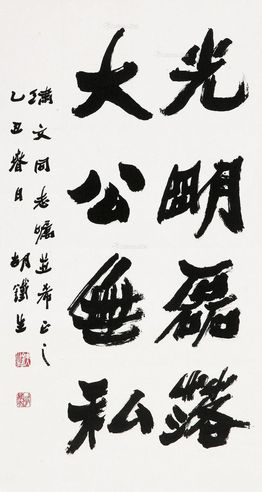 光明磊落
大公無私
瀟文同志囑並希正之
乙丑春日 胡鐵生